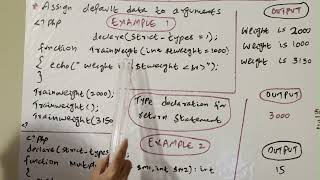 * Assign default data to arguments
<?php
EXAMPLE 1
OUTPUT
declare(strict-types = 1);
Weight is 2000
function Trainweight(int $tweight = 1000)
Weight is 1000
{ echo("weight $tweight <br>");
Weight is 3150
}
Trainweight (2000);
Trainweight();
Trainweight(3150
Type declaration for
return statement
OUTPUT
3000
<?php
EXAMPLE 2
declare(strict-types
OUTPUT
function Multipl $m1, int $m2) : int
15